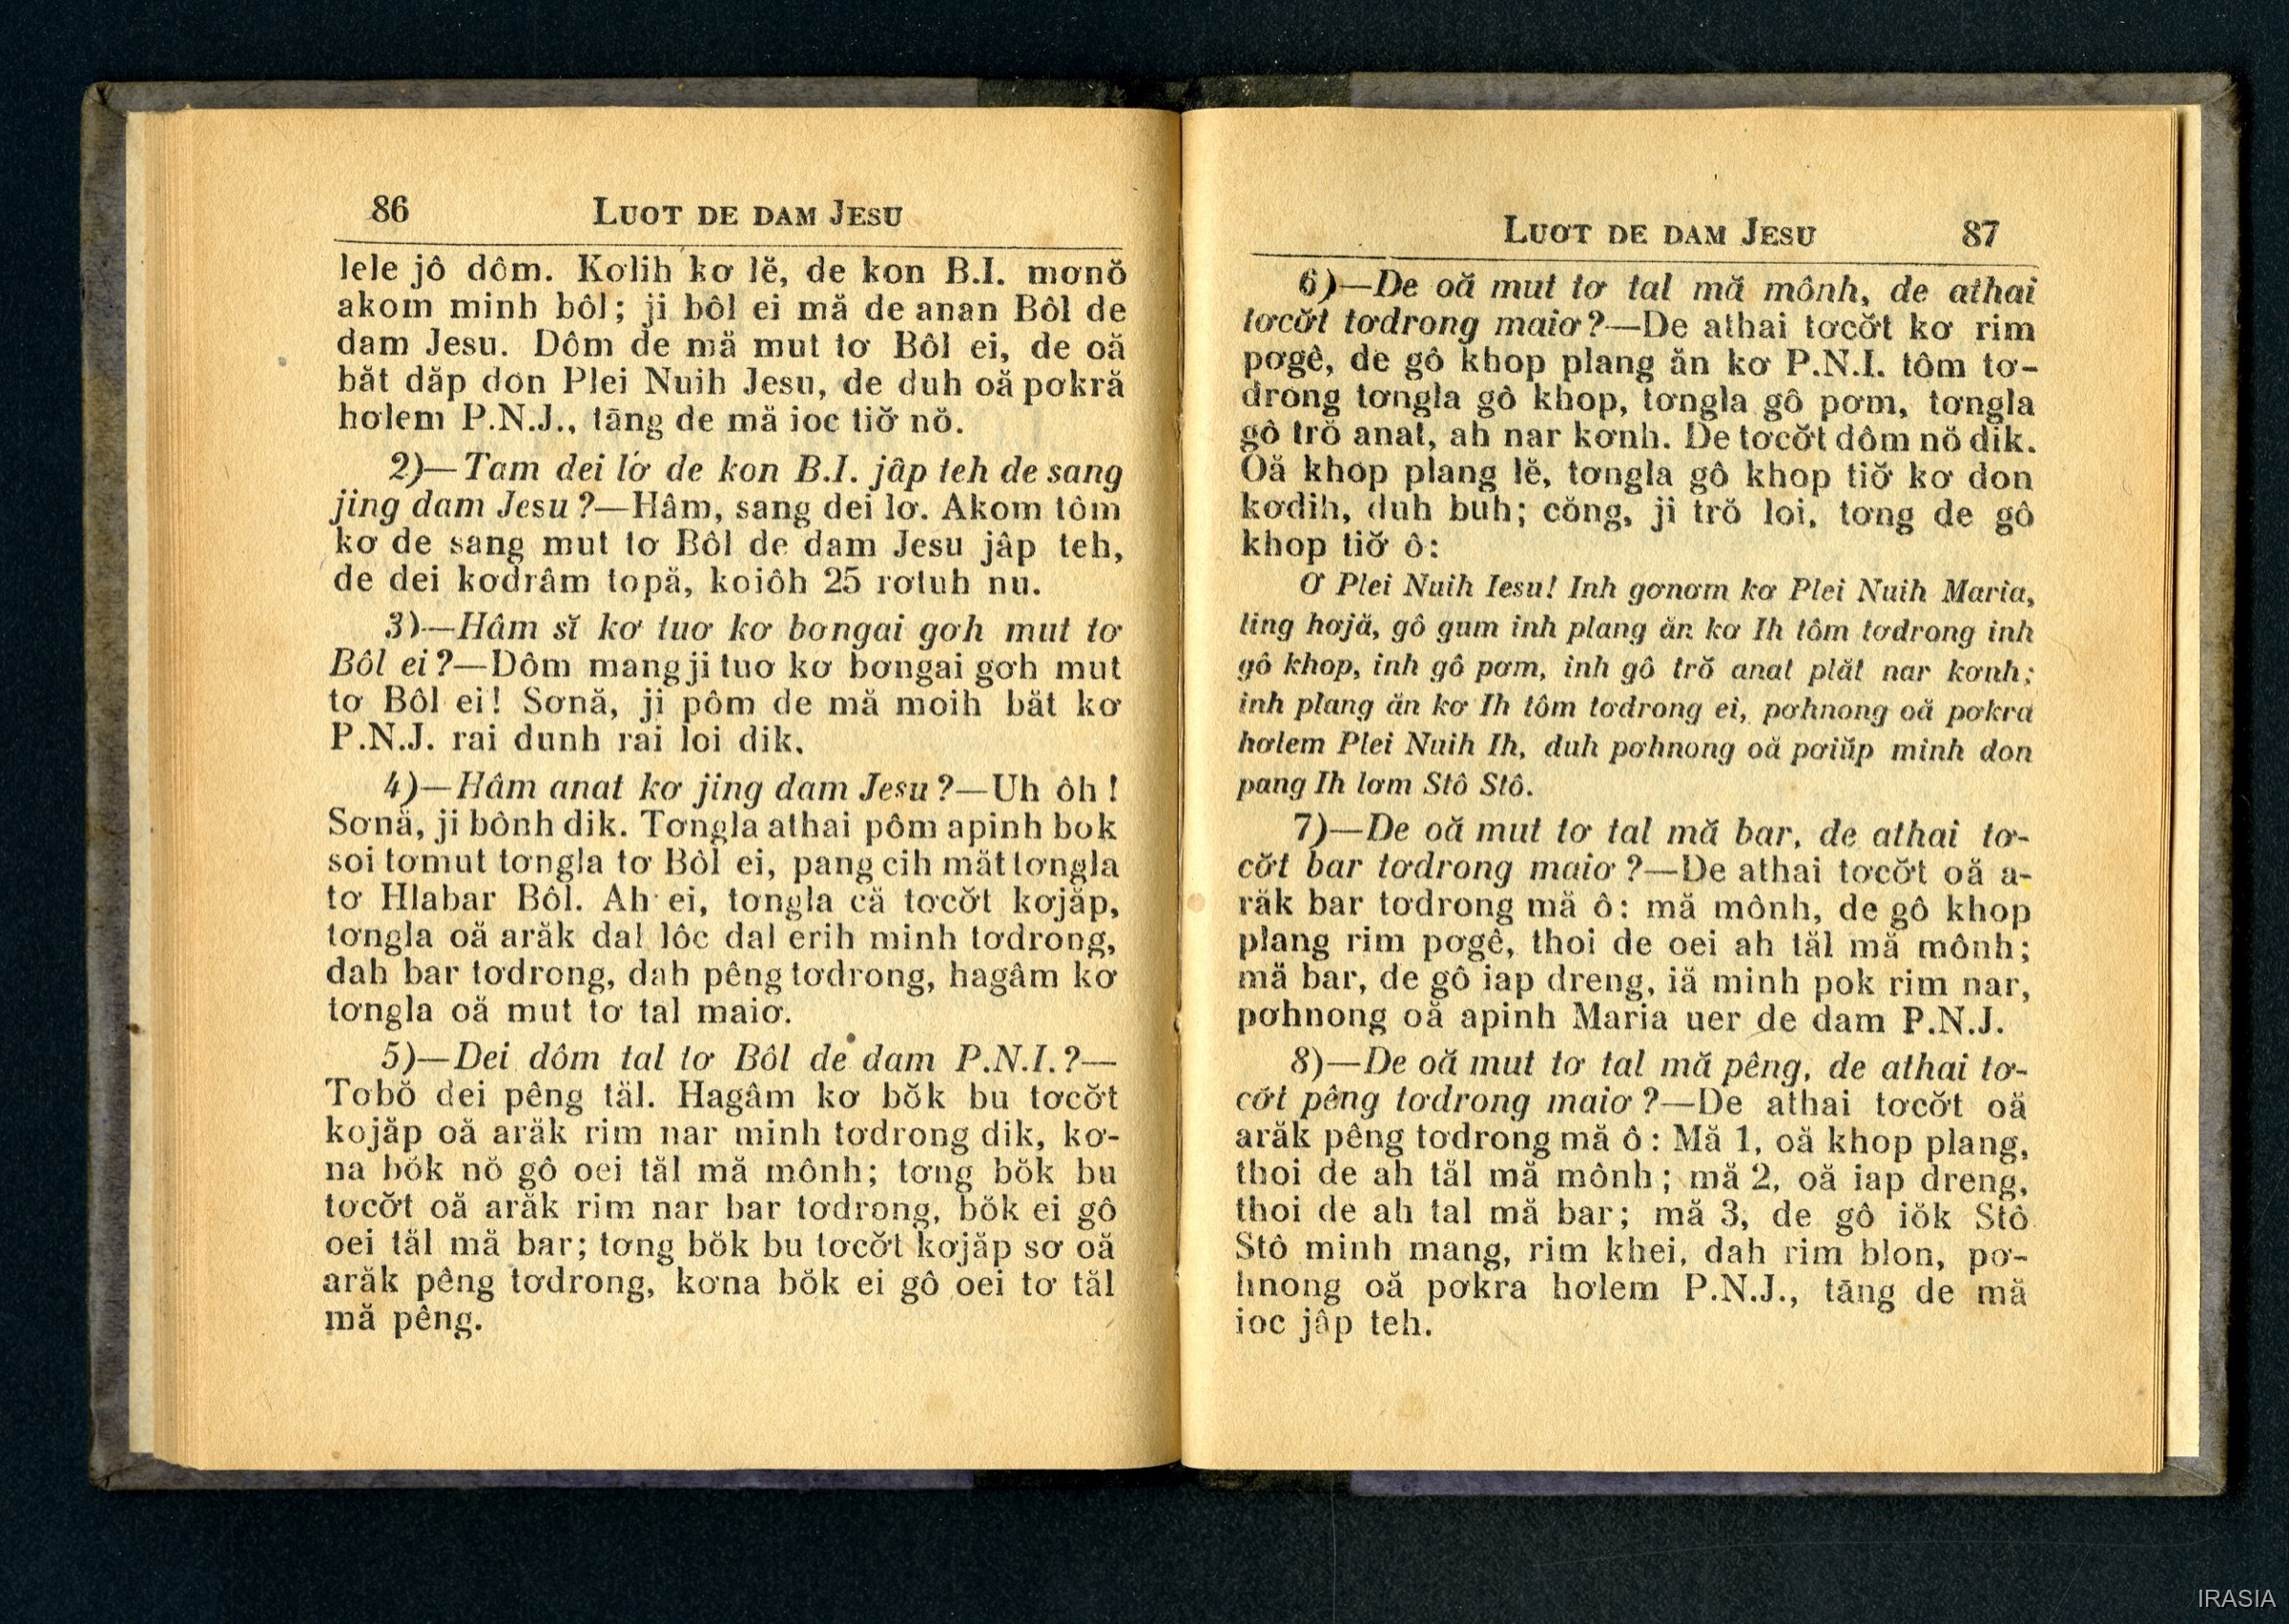 86 LUOT DE DAM JESU
lele jô dôm. Kơlih kơ lĕ, de kon B.I. mơnŏ
akom minh bôl; ji bôl ei mă de anan Bôl de
dam Jesu. Dôm de mă mut tơ Bôl ei, de oă
băt dăp don Plei Nuih Jesu, de duh oă pơkră
hơlem P.N.J., tāng de mă ioc tiơ̆ nŏ.
2)—Tam dei lơ de kon B.I. jâp teh de sang
jing dam Jesu ?—Hâm, sang dei lơ. Akom tôm
kơ de sang mut tơ Bôl de dam Jesu jâp teh,
de dei kơdrâm tơpă, kơiôh 25 rơtuh nu.
3)—Hâm sĭ kơ tuơ kơ bơngai gơh mut tơ
Bôl ei ?—Dôm mang ji tuơ kơ bơngai gơh mut
tơ Bôl ei! Sơnă, ji pôm de mă moih băt kơ
P.N.J. rai dunh rai loi dik.
4)—Hâm anat kơ jing dam Jesu ?—Uh ôh !
Sơnă, ji bônh dik. Tơngla athai pôm apinh bok
soi tơmut tơngla tơ Bôl ei, pang cih măt tơngla
tơ Hlabar Bôl. Ah ei, tơngla că tơcơ̆t kơjăp,
tơngla oă arăk dal lôc dal erih minh tơdrong,
dah bar tơdrong, dah pêng tơdrong, hagâm kơ
tơngla oă mut tơ tal maiơ.
5)—Dei dôm tal tơ Bôl de dam P.N.I. ?—
Tơbŏ dei pêng tăl. Hagâm kơ bŏk bu tơcơ̆t
kơjăp oă arăk rim nar minh tơdrong dik, kơ-
na bŏk nŏ gô oei tăl mă mônh; tơng bŏk bu
tơcơ̆t oă arăk rim nar bar tơdrong, bŏk ei gô
oei tăl mă bar; tơng bŏk bu tơcơ̆t kơjăp sơ oă
arăk pêng tơdrong, kơna bŏk ei gô oei tơ tăl
mă pêng.
LUƠT DE DAM JESU 87
6)—De oă mut tơ tal mă mônh, de athai
tơcơ̆t tơdrong maiơ ?—De athai tơcơ̆t kơ rim
pơgê, de gô khop plang ăn kơ P.N.I. tôm tơ-
drong tơngla gô khop, tơngla gô pơm, tơngla
gô trŏ anat, ah nar kơnh. De tơcơ̆t dôm nŏ dik.
Oă khop plang lĕ, tơngla gô khop tiơ̆ kơ don
kơdih, duh buh; cŏng, ji trŏ loi, tơng de gô
khop tiơ̆ ô:
Ơ Plei Nuih Iesu! Inh gơnơm kơ Plei Nuih Maria,
ling hơjă, gô gum inh plang ăn kơ Ih tôm tơdrong inh
gô khop, inh gô pơm, inh gô trŏ anat plăt nar kơnh;
inh plang ăn kơ Ih tôm tơdrong ei, pơhnong oă pơkra
hơlem Plei Nuih Ih, duh pơhnong oă pơiŭp minh don
pang Ih lơm Stô Stô.
7)—De oă mut tơ tal mă bar, de athai tơ-
cơ̆t bar tơdrong maiơ ?—De athai tơcơ̆t oă a-
răk bar tơdrong mă ô: mă mônh, de gô khop
plang rim pơgê, thoi de oei ah tăl mă mônh;
mă bar, de gô iap dreng, iă minh pok rim nar,
pơhnong oă apinh Maria uer de dam P.N.J.
8)—De oă mut tơ tal mă pêng, de athai tơ-
cơ̆t pêng tơdrong maiơ ?—De athai tơcơ̆t oă
arăk pêng tơdrong mă ô : Mă 1, oă khop plang,
thoi de ah tăl mă mônh ; mă 2, oă iap dreng,
thoi de ah tal mă bar; mă 3, de gô iŏk Stô
Stô minh mang, rim khei, dah rim blon, pơ-
hnong oă pơkra hơlem P.N.J., tāng de mă
ioc jâp teh.
IRASIA